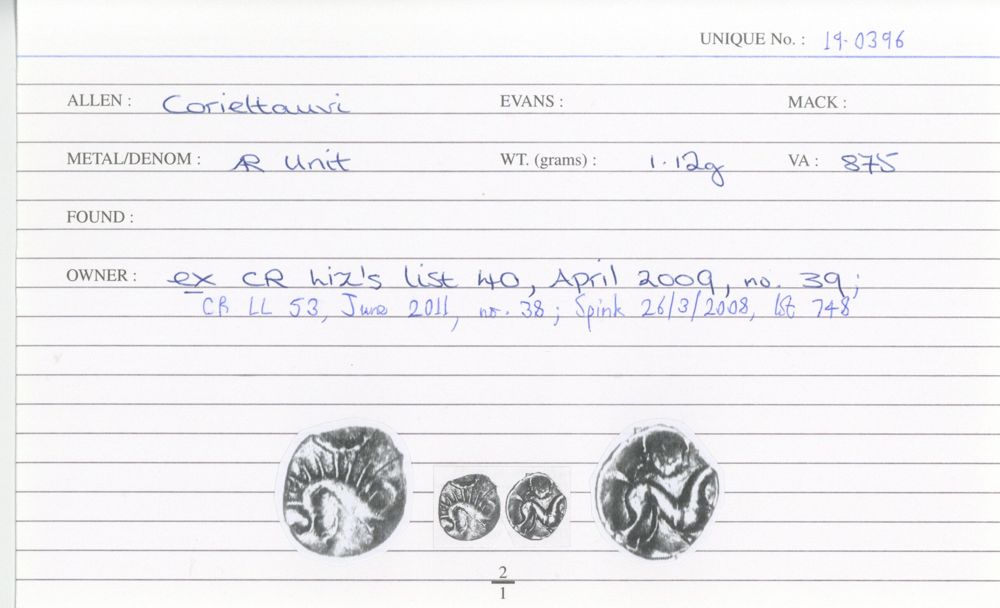 UNIQUE No. : 19.0396
ALLEN : Corieltauvi EVANS : MACK :
METAL/DENOM : AR Unit WT. (grams) : 1.12g VA : 875
FOUND :
OWNER : ex CR Liz's list 40, April 2009, no. 39;
CR LL 53, June 2011, no. 38; Spink 26/3/2008, lot 748
2
1